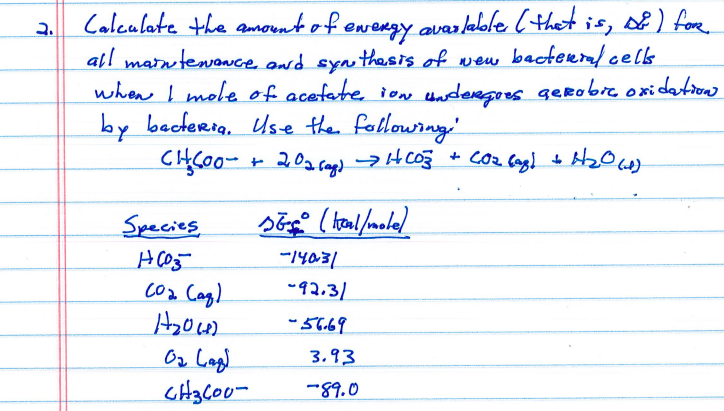 2. Calculate the amount of energy available (that is, ΔG°) for
all maintenance and synthesis of new bacterial cells
when 1 mole of acetate ion undergoes aerobic oxidation
by bacteria. Use the following:
CH₃COO⁻ + 2O₂(aq) → HCO₃⁻ + CO₂(aq) + H₂O(l)
Species ΔG̅f° (kcal/mole)
HCO₃⁻ -140.31
CO₂(aq) -92.31
H₂O(l) -56.69
O₂(aq) 3.93
CH₃COO⁻ -89.0